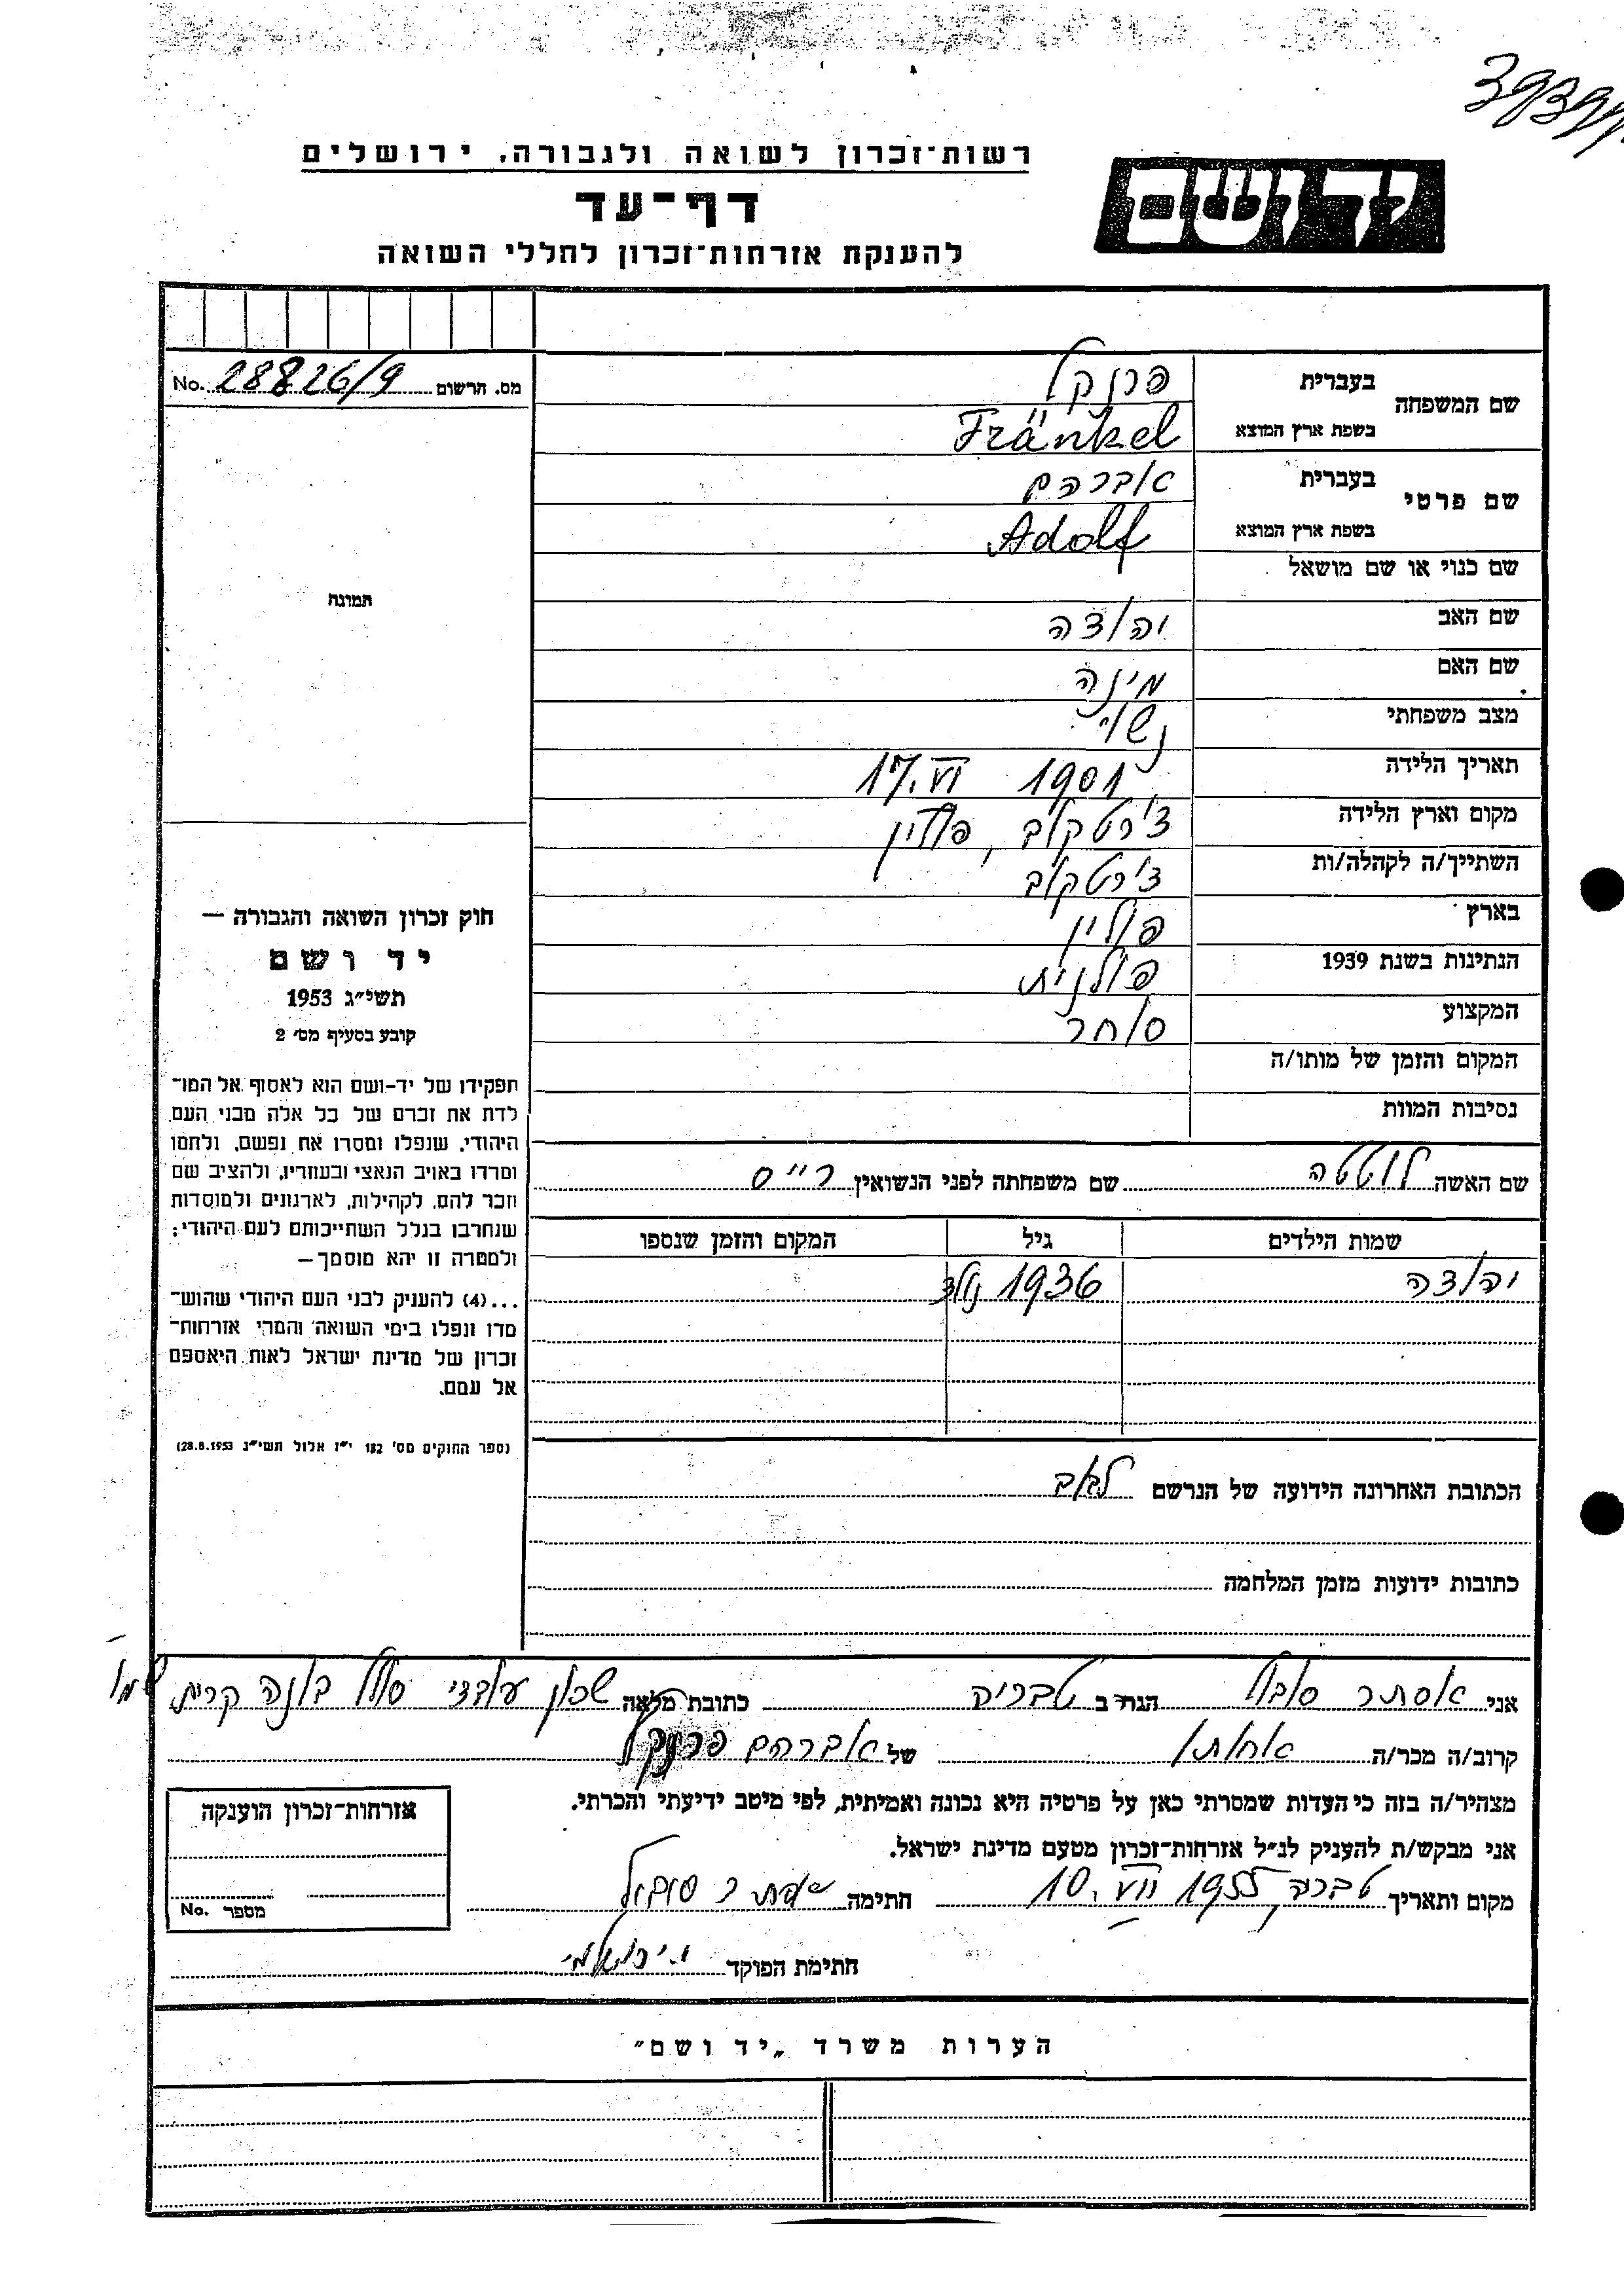 רשות־זכרון לשואה ולגבורה, ירושלים
יד ושם
דף־עד
להענקת אזרחות־זכרון לחללי השואה
מס. הרשום 28826/9 No.
שם המשפחה
בעברית
פרנקל
בשפת ארץ המוצא
Fränkel
שם פרטי
בעברית
אברהם
בשפת ארץ המוצא
Adolf
שם כנוי או שם מושאל
שם האב
יהודה
שם האם
מינה
מצב משפחתי
נשוי
תאריך הלידה
17. VI 1901
מקום וארץ הלידה
צ'ורטקוב, פולין
השתייך/ה לקהלה/ות
צ'ורטקוב
בארץ
פולין
הנתינות בשנת 1939
פולנית
המקצוע
סוחר
המקום והזמן של מותו/ה
נסיבות המוות
שם האשה לוטטה שם משפחתה לפני הנשואין רייס
שמות הילדים גיל המקום והזמן שנספו
יהודה נולד 1936
הכתובת האחרונה הידועה של הנרשם לבוב
כתובות ידועות מזמן המלחמה
תמונה
חוק זכרון השואה והגבורה —
יד ושם
תשי״ג 1953
קובע בסעיף מס׳ 2
תפקידו של יד-ושם הוא לאסוף אל המו־
לדת את זכרם של כל אלה מבני העם
היהודי, שנפלו ומסרו את נפשם, ולחמו
ומרדו באויב הנאצי ובעוזריו, ולהציב שם
וזכר להם, לקהילות, לארגונים ולמוסדות
שנחרבו בגלל השתייכותם לעם היהודי;
ולמטרה זו יהא מוסמך —
...(4) להעניק לבני העם היהודי שהוש־
מדו ונפלו בימי השואה והמרי אזרחות־
זכרון של מדינת ישראל לאות היאספם
אל עמם.
(ספר החוקים מס׳ 132 י״ז אלול תשי״ג 28.8.1953)
אני אסתר סובול הגר/ה ב טבריה כתובת מלאה שכון עובדי סולל בונה קרית שמואל
קרוב/ה מכר/ה אחותו של אברהם פרנקל
מצהיר/ה בזה כי העדות שמסרתי כאן על פרטיה היא נכונה ואמיתית, לפי מיטב ידיעתי והכרתי.
אני מבקש/ת להעניק לנ״ל אזרחות־זכרון מטעם מדינת ישראל.
מקום ותאריך טבריה 10. VII 1955 חתימה אסתר סובול
חתימת הפוקד
אזרחות־זכרון הוענקה
מספר No.
הערות משרד „יד ושם״